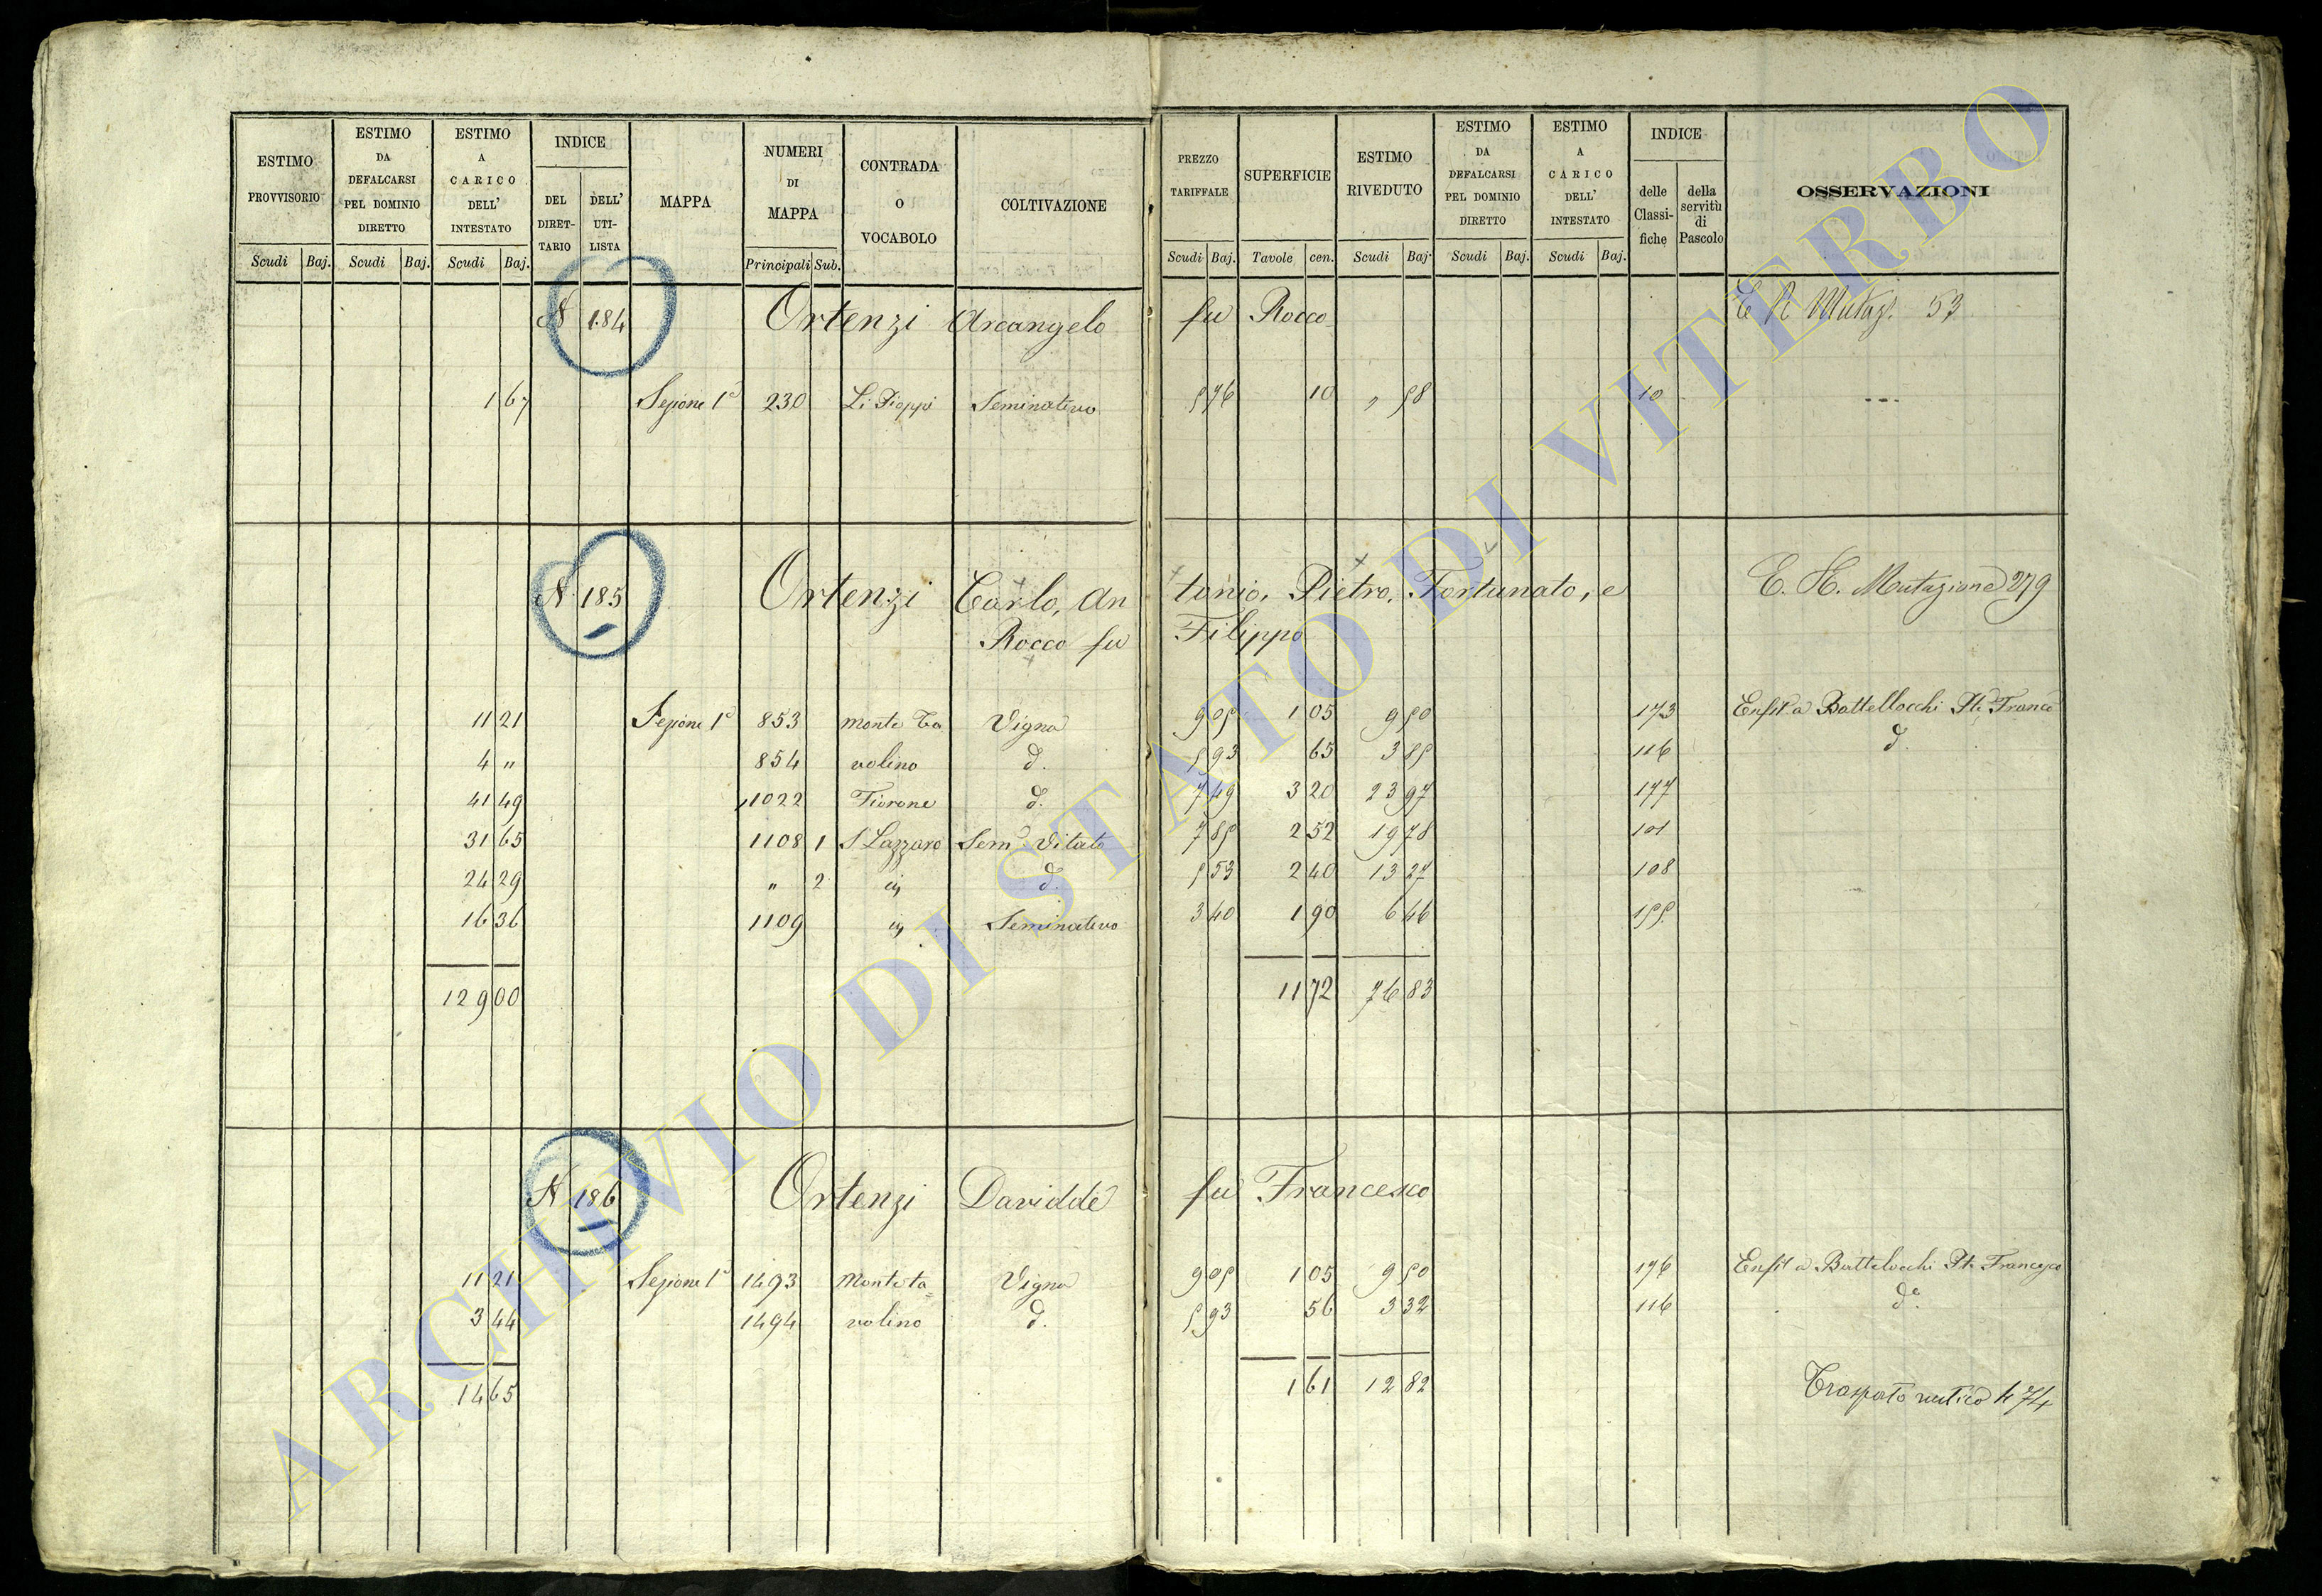 ESTIMO PROVVISORIO
ESTIMO DA DEFALCARSI PEL DOMINIO DIRETTO
ESTIMO A CARICO DELL' INTESTATO
INDICE
DEL DIRET-TARIO
DELL' UTI-LISTA
MAPPA
NUMERI DI MAPPA
CONTRADA O VOCABOLO
COLTIVAZIONE
PREZZO TARIFFALE
SUPERFICIE
ESTIMO RIVEDUTO
ESTIMO DA DEFALCARSI PEL DOMINIO DIRETTO
ESTIMO A CARICO DELL' INTESTATO
INDICE
delle Classi-fiche
della servitù di Pascolo
OSSERVAZIONI
Scudi Baj. Scudi Baj. Scudi Baj. Principali Sub. Scudi Baj. Tavole cen. Scudi Baj. Scudi Baj. Scudi Baj.
N 184 Ortenzi Arcangelo fu Rocco 53
1 67 Sezione 1ª 230 Li Pioppi Seminativo 5 76 10 " 58 10
N 185 Ortenzi Carlo, An tonio, Pietro, Fortunato, e E. H. Mutazione 279
Rocco fu Filippo
11 21 Sezione 1ª 853 Monte Ta Vigna 9 05 1 05 9 50 173 Enfit. a Battellocchi Franco
4 " 854 volino d. 5 93 65 3 85 116 d.
41 49 1022 Fiorone d. 7 49 3 20 23 97 177
31 65 1108 1 S Lazzaro Sem Vitato 7 85 2 52 19 78 101
24 29 " 2 d. 5 53 2 40 13 27 108
16 36 1109 Seminativo 3 40 1 90 6 46 155
129 00 11 72 76 83
N 186 Ortenzi Davidde fu Francesco
11 21 Sezione 1ª 1493 Monte ta= Vigna 9 05 1 05 9 50 176 Enfit a Battelocchi Francesco
3 44 1494 volino d. 5 93 56 3 32 116 d.
14 65 1 61 12 82 Trasporto 474
ARCHIVIO DI STATO DI VITERBO